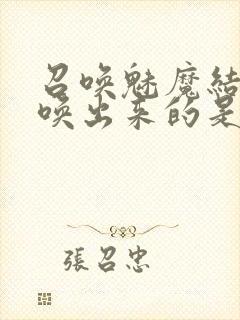 召唤魅魔结
唤出来的是
張召忠